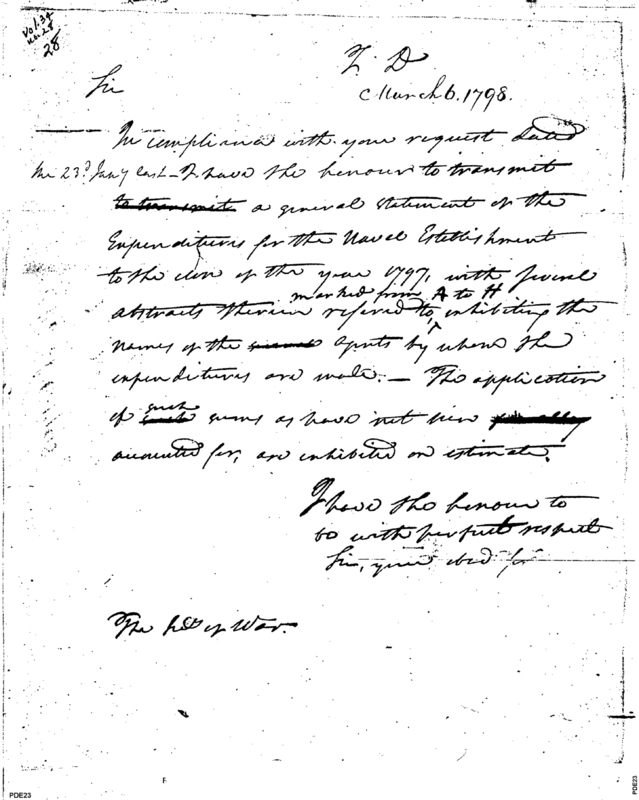 Vol. 34
No. 28
28
T. D
March 6. 1798.
Sir
In compliance with your request dated
the 23d Jany last - I have the honour to transmit
to transmit a general statement of the
Expenditures for the Naval Establishment
to the close of the year 1797, with several
marked from A to H
abstracts therein refered to, exhibiting the
names of the agents by whom the
expenditures are made. — The application
such
of such sums as have not been
accounted for, are exhibited on estimate.
I have the honour to
be with perfect respect
Sir, your obed
The Secy of War.
PDE23
PDE23